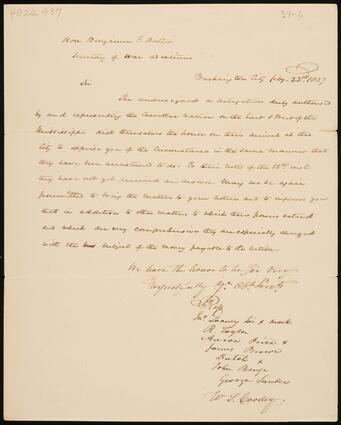 4026.437
37-6
Hon. Benjamin F. Butler
Secretary of War ad interim
Washington City Feby. 22d 1837
Sir
The undersigned a delegation duly authorised
by and representing the Cherokee Nation on the East & West of the
Mississippi did themselves the honor on their arrival at this
City to apprise you of the Circumstance in the same manner that
they have been accustomed to do. To their note of the 10th inst.
they have not yet received an answer. May we be again
permitted to bring the matter to your notice and to inform you
that in addition to other matters to which their powers extend
and which are very comprehensive they are especially charged
with the subject of the money payable to the nation.
We have the honor to be Sir very
respectfully Yr. Obt. Servts
Jno Ross
Jno. Looney his x mark
R. Taylor
Aaron Price x
James Brown
Dutch x
John Benge
George Sanders
W. S. Coodey